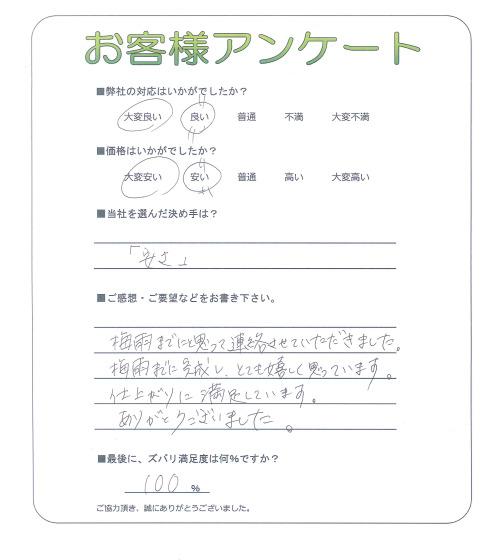 お客様アンケート
■弊社の対応はいかがでしたか？
大変良い 良い 普通 不満 大変不満
■価格はいかがでしたか？
大変安い 安い 普通 高い 大変高い
■当社を選んだ決め手は？
「安さ」
■ご感想・ご要望などをお書き下さい。
梅雨までにと思って連絡させていただきました。
梅雨までに完成し、とても嬉しく思っています。
仕上がりに満足しています。
ありがとうございました。
■最後に、ズバリ満足度は何%ですか？
100 %
ご協力頂き、誠にありがとうございました。